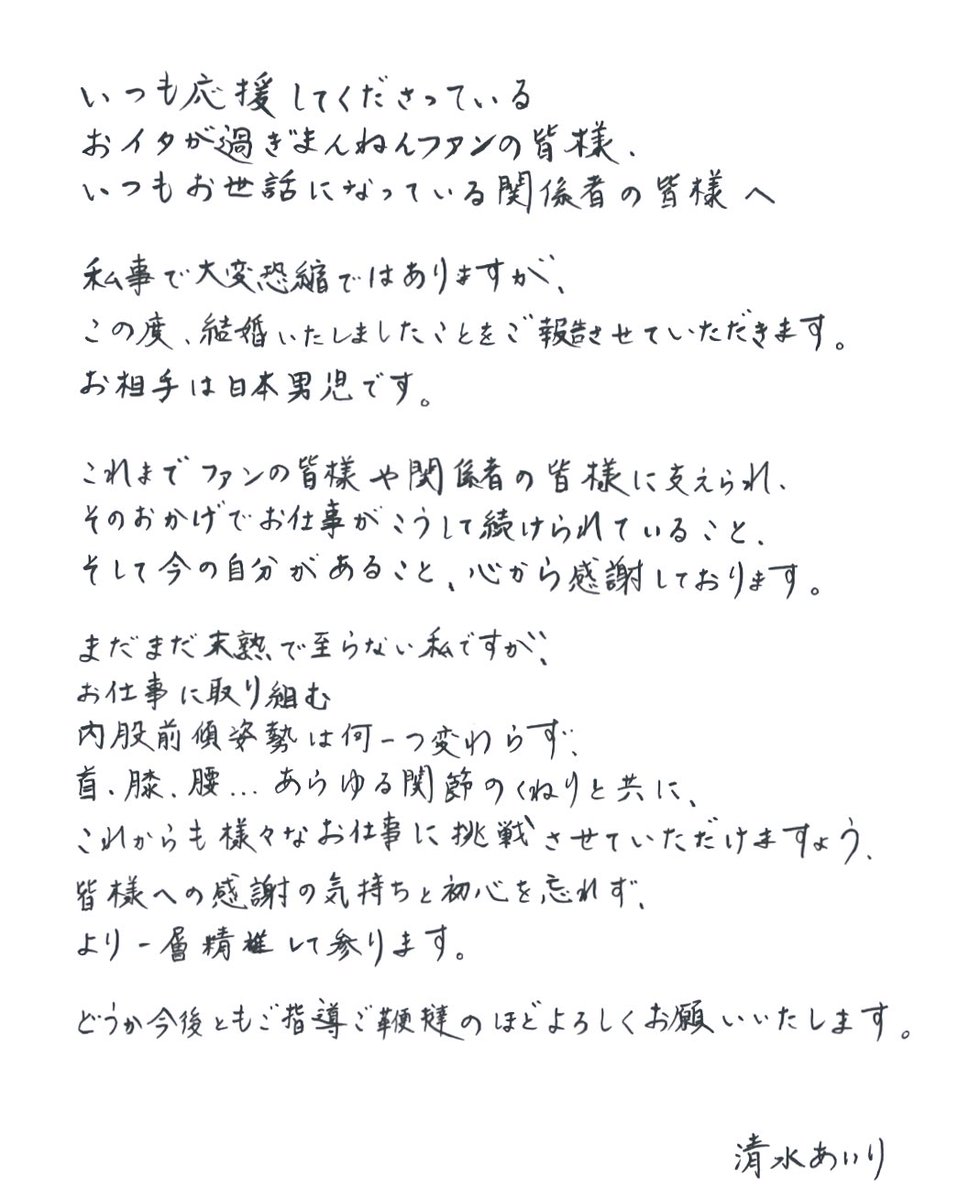 いつも応援してくださっている
おイタが過ぎまんねんファンの皆様、
いつもお世話になっている関係者の皆様へ
私事で大変恐縮ではありますが、
この度、結婚いたしましたことをご報告させていただきます。
お相手は日本男児です。
これまでファンの皆様や関係者の皆様に支えられ、
そのおかげでお仕事がこうして続けられていること、
そして今の自分があること、心から感謝しております。
まだまだ未熟で至らない私ですが、
お仕事に取り組む
内股前傾姿勢は何一つ変わらず、
首、膝、腰…あらゆる関節のくねりと共に、
これからも様々なお仕事に挑戦させていただけますよう、
皆様への感謝の気持ちと初心を忘れず、
より一層精進して参ります。
どうか今後ともご指導ご鞭撻のほどよろしくお願いいたします。
清水あいり